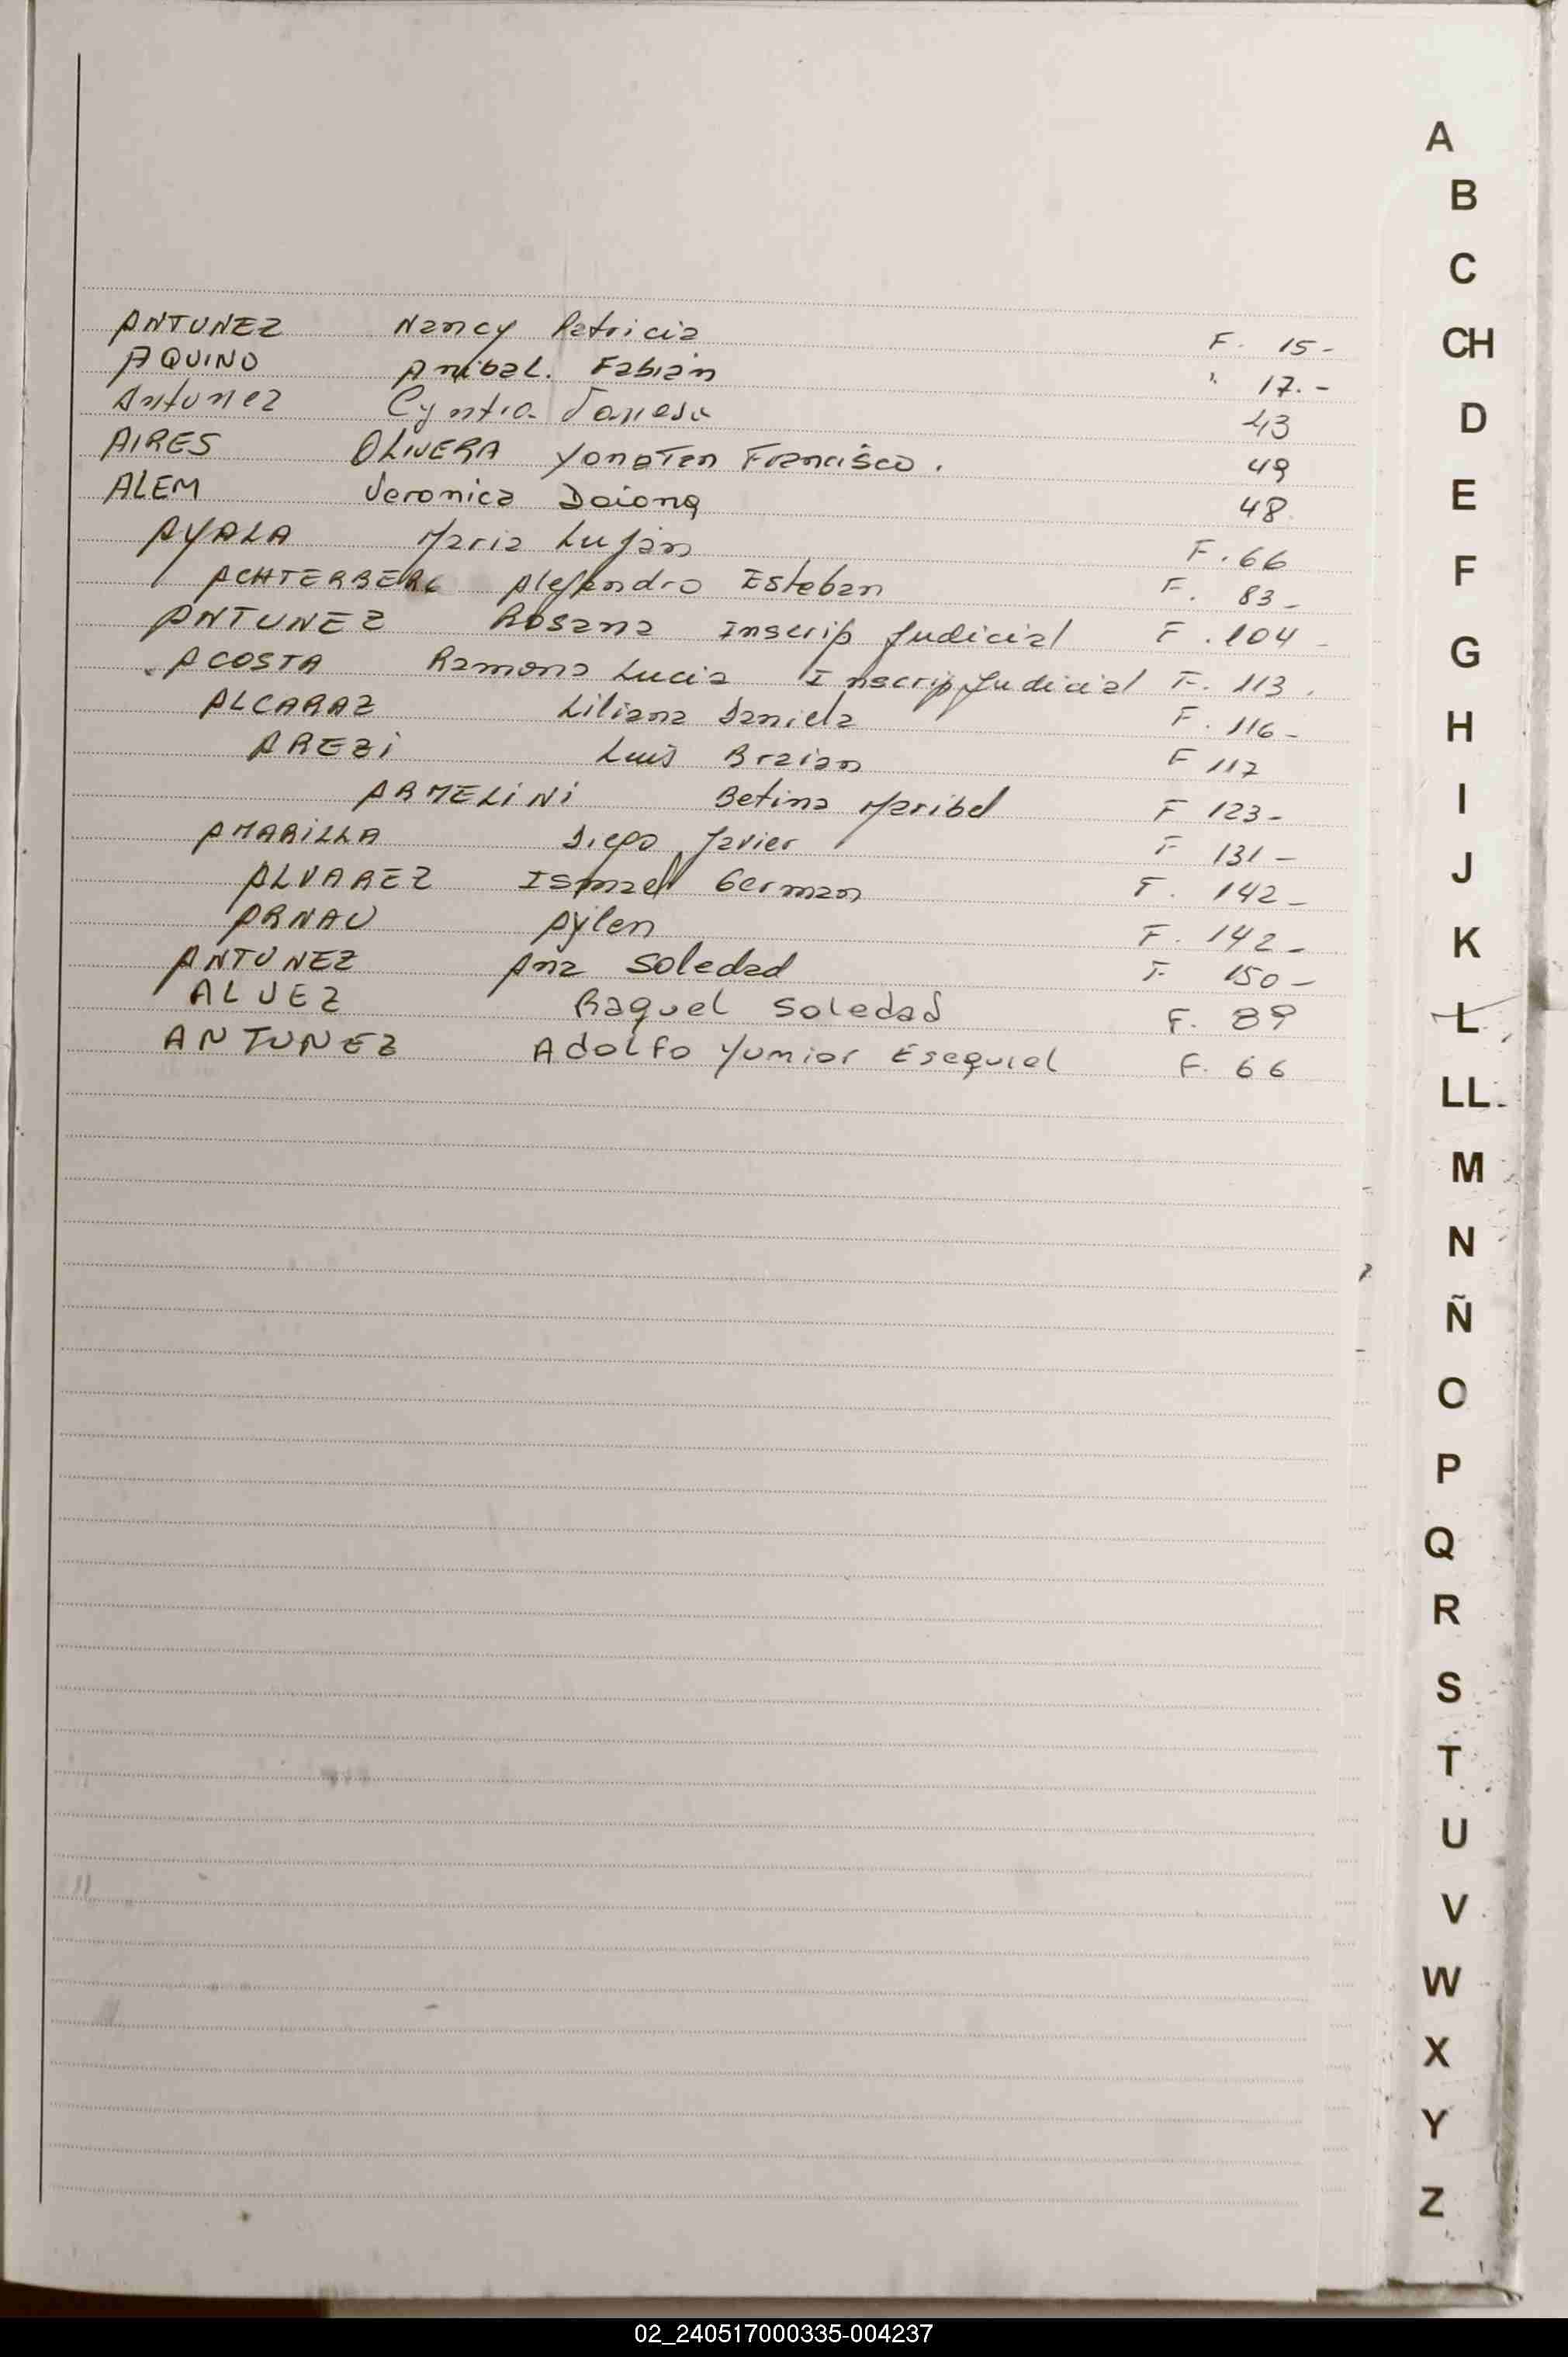 ANTUNEZ Nancy Patricia F. 15-
AQUINO Anibal. Fabián " 17.-
Antunez Cyntia Vanesa 43
AIRES OLIVERA Yonaten Francisco. 49
ALEM Veronica Daiana 48
AYALA Maria Luján F. 66
ACHTERBERG Alejandro Esteban F. 83-
ANTUNEZ Rosana Inscrip Judicial F. 104-
ACOSTA Ramona Lucia Inscrip Judicial F. 113.
ALCARAZ Liliana Daniela F. 116-
AREZI Luis Braian F 117
ARMELINI Betina Maribel F 123-
AMARILLA Diego Javier F 131-
ALVAREZ Ismael German F. 142-
ARNAU Aylen F. 142-
ANTUNEZ Ana Soledad F 150-
ALVEZ Raquel Soledad F. 89
ANTUNEZ Adolfo Yunior Esequiel F. 66
A
B
C
CH
D
E
F
G
H
I
J
K
L
LL
M
N
Ñ
O
P
Q
R
S
T
U
V
W
X
Y
Z
02_240517000335-004237